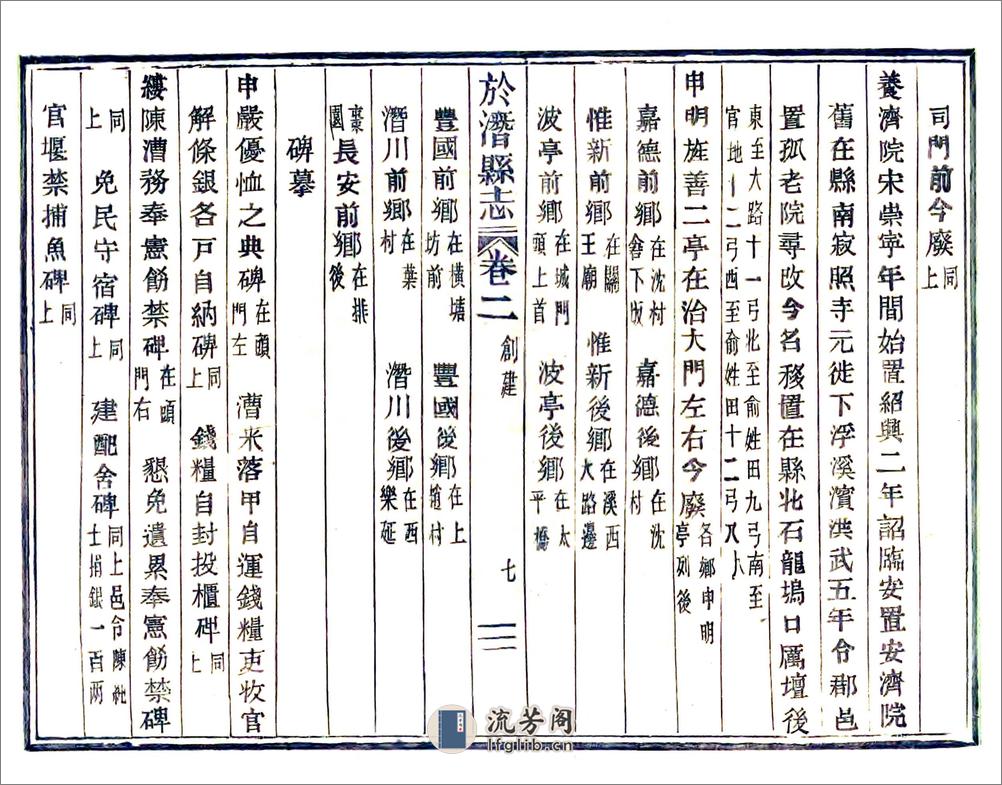 司門前今廢同上
養濟院宋崇寧年間始置紹興二年詔臨安置安濟院
舊在縣南寂照寺元徙下浮溪濱洪武五年令郡邑
置孤老院尋改今名移置在縣北石龍塢口厲壇後
東至大路十一弓北至俞姓田九弓南至
官地一二弓西至俞姓田十二弓
申明旌善二亭在治大門左右今廢各鄉申明亭列後
嘉德前鄉在沈村舍下 嘉德後鄉在沈村
惟新前鄉在關王廟 惟新後鄉在溪西大路邊
波亭前鄉在城門頭上首 波亭後鄉在太平橋
於潛縣志 卷二 創建 七
豐國前鄉在橫塘坊前 豐國後鄉在上村
潛川前鄉在葉村 潛川後鄉在西樂延
長安前鄉在排後園
碑摹
申嚴優恤之典碑在頭門左 漕米落甲自運錢糧吏收官
解條銀各戶自納碑同上 錢糧自封投櫃碑同上
縷陳漕務奉憲飭禁碑在頭門右 懇免遺累奉憲飭禁碑
同上 免民守宿碑同上 建配舍碑同上邑令陳士捐銀一百兩
官堰禁捕魚碑同上
流芳阁
lfglib.cn